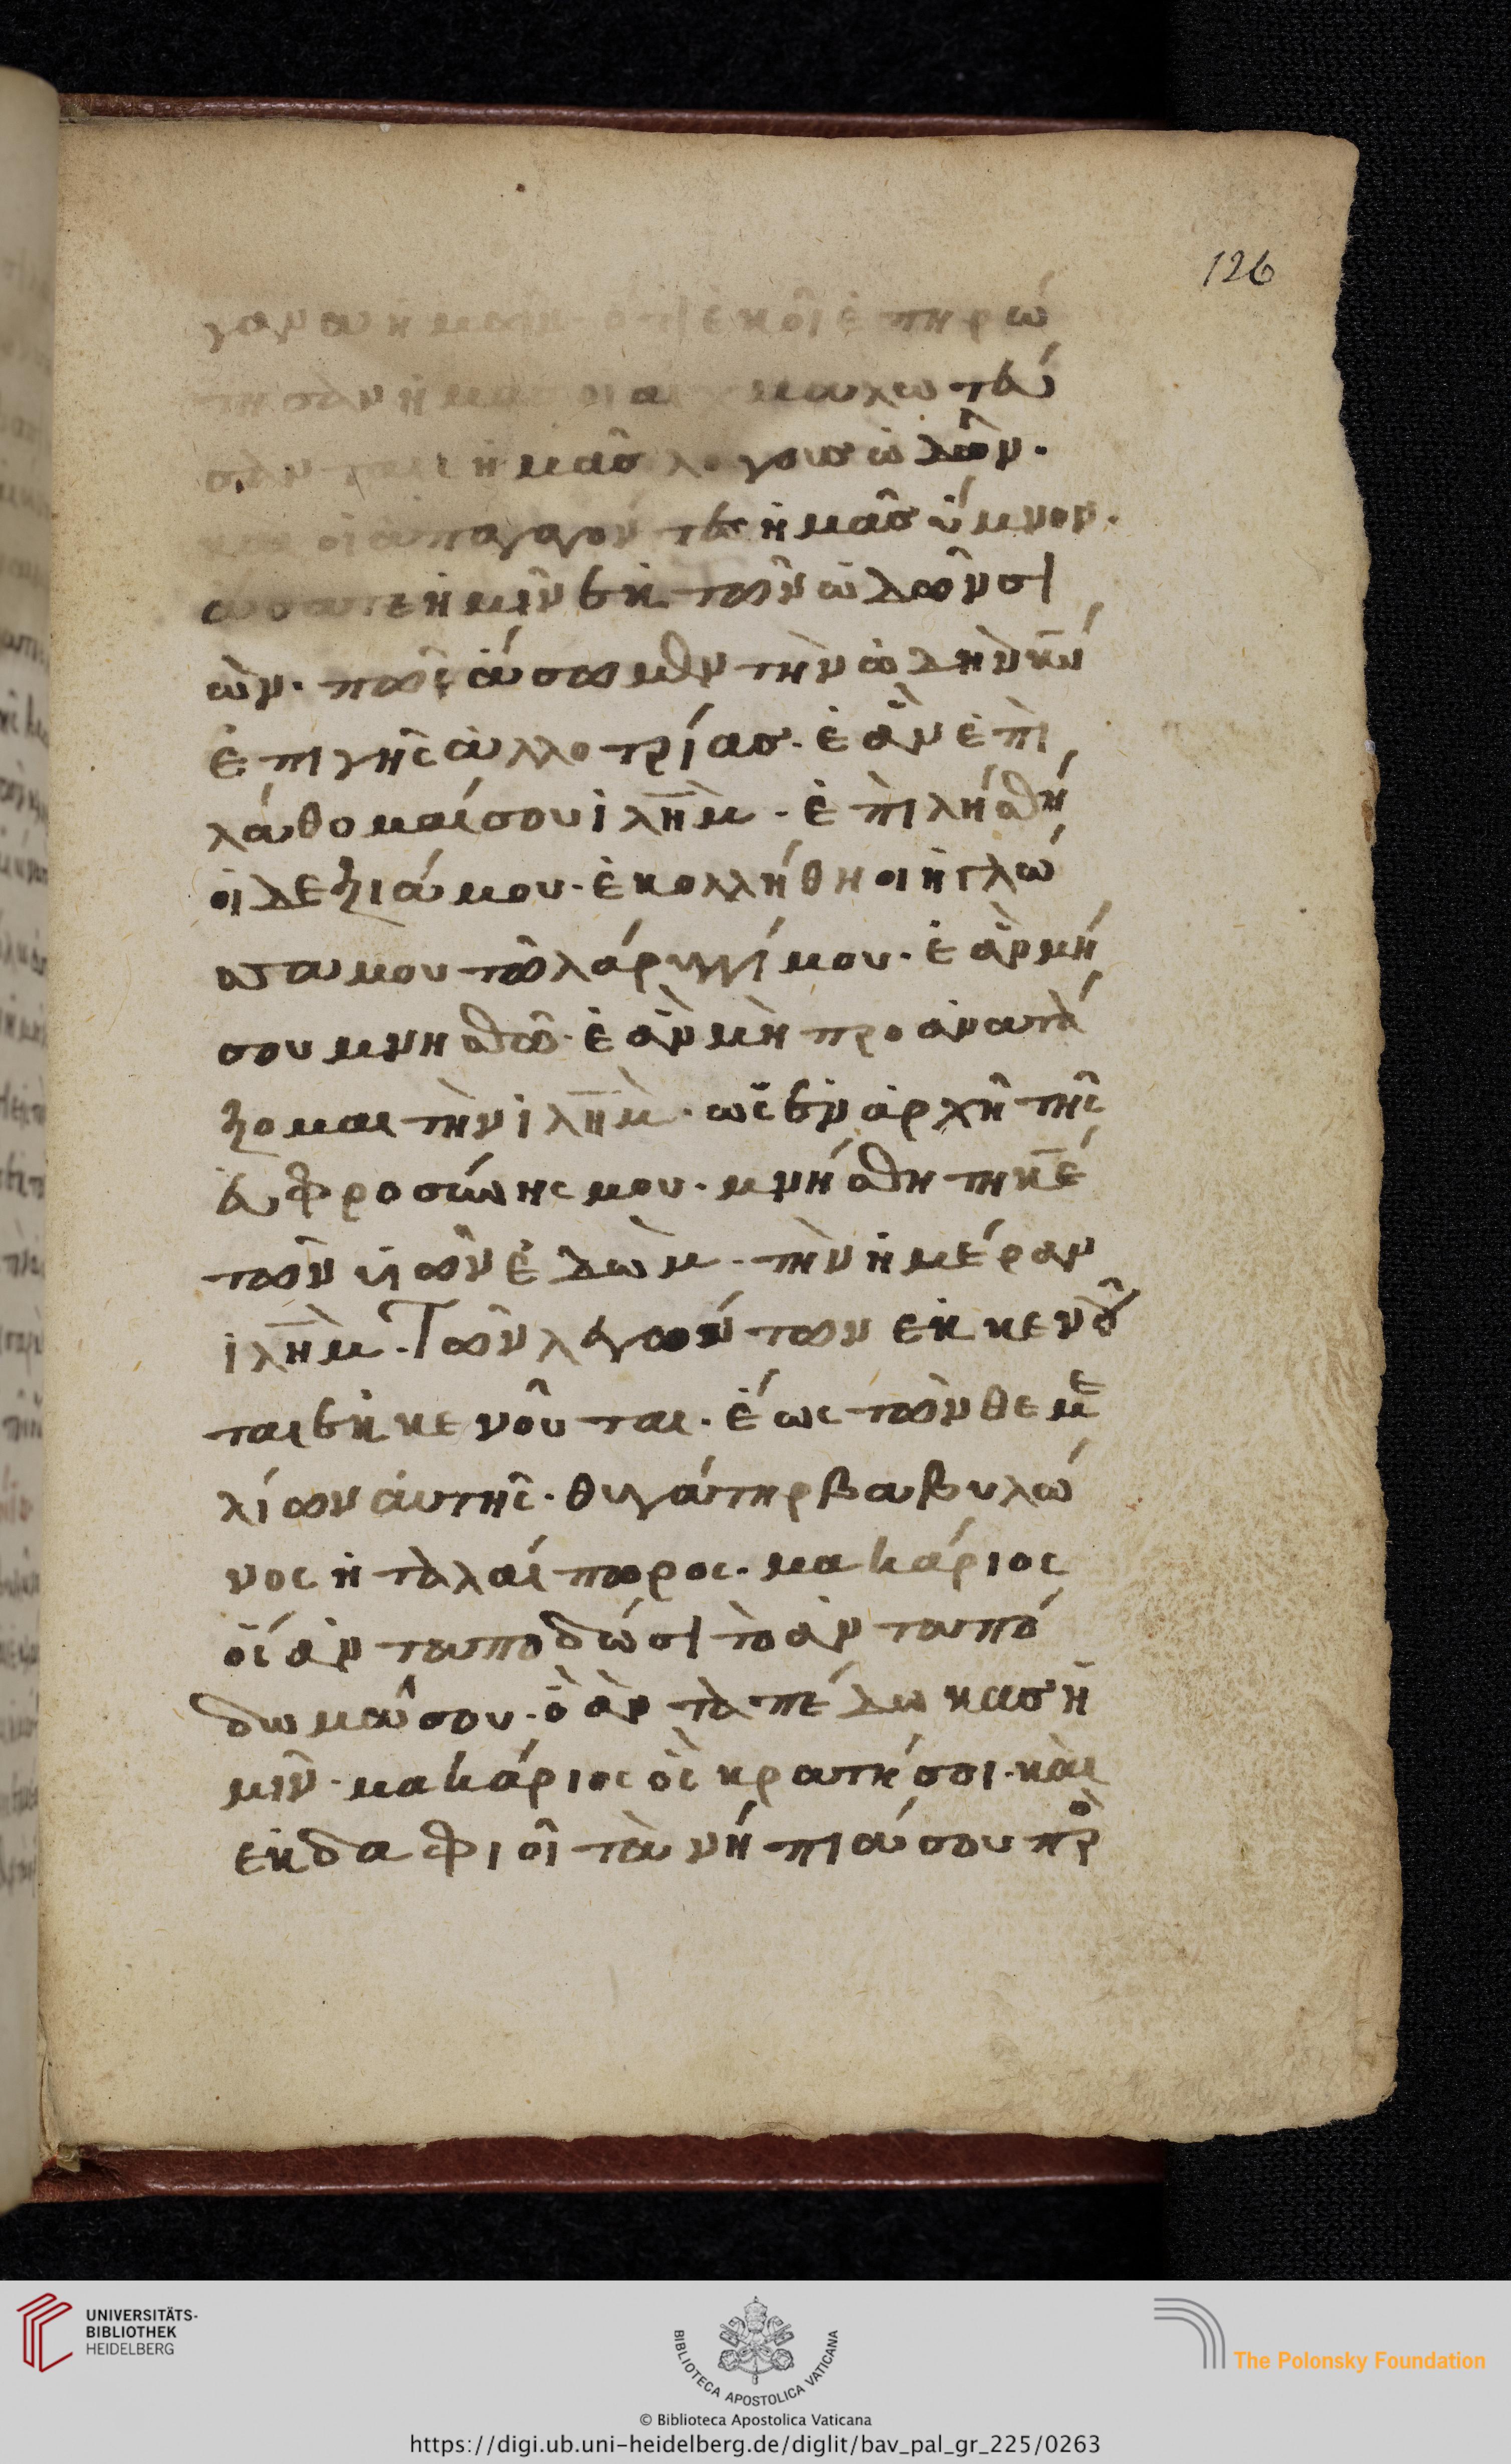 126
γανα ἡμῶν· ὅτι ἐκοῖ ἐπηρώ
τησαν ἡμᾶς οἱ αἰχμαλωτεύ
σαντες ἡμᾶσ λόγουσ ὠδῶν·
καὶ οἱ ἀπαγαγόντες ἡμᾶσ ὕμνον·
ἄσατε ἡμῖν ἐκ τῶν ὠδῶν σι
ὼν· πῶς ἄσωμεν τὴν ὠδὴν κ̅υ̅
ἐπι γῆς ἀλλοτρίασ· ἐὰν ἐπὶ
λάθομαί σου ἰλη̅μ̅· ἐπὶλήσθή
οἱ δεξιά μου· ἐκολλήθη οι ἡ γλώ
σσα μου τῶ λάρυγγί μου· ἐὰν μή
σου μνησθῶ· ἐὰν μὴ προανατά
ξομαι τὴν ἰλη̅μ̅· ὡς ἐν ἀρχῆ τῆς
ἐυφροσύνης μου· μνήσθητη κ̅ε̅
τῶν υἱῶν ἐδώμ· τὴν ἡμέραν
ἰλη̅μ̅· Τῶν λεγόντων εκκενοῦ
ται ἐκκενοῦται· ἕως τῶν θεμε
λίων ἀυτῆς· θυγάτηρ βαβυλώ
νος ἡ ταλαίπωρος· μακάριος
ὅς ἀνταποδώσι τὸ ἀνταπό
δωμά σου· ὃ ἀνταπέδωκασ ἡ
μῖν· μακάριος ὃς κρατήσοι· καὶ
εκδαφιοῖ τὰ νήπιά σου πρ̀ο
UNIVERSITÄTS-
BIBLIOTHEK
HEIDELBERG
BIBLIOTECA APOSTOLICA VATICANA
The Polonsky Foundation
© Biblioteca Apostolica Vaticana
https://digi.ub.uni-heidelberg.de/diglit/bav_pal_gr_225/0263